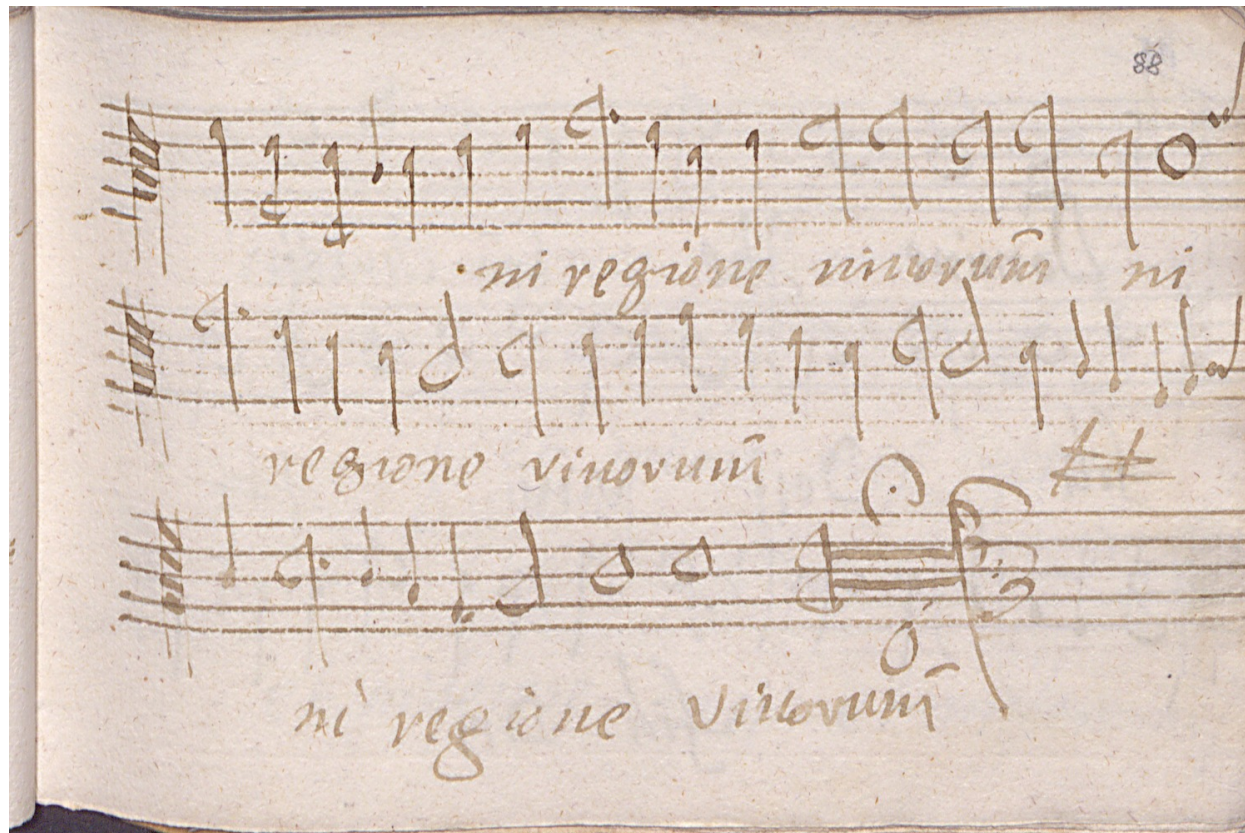 88
ni regione viuorum̄ ni
regione viuorum̄
ni regione viuorum̄